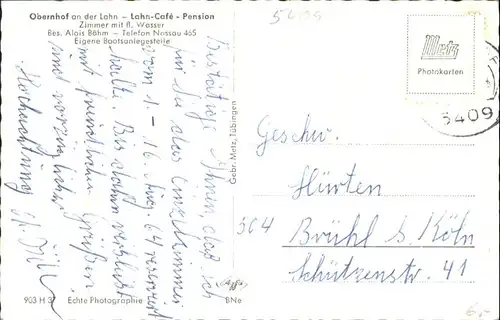 Obernhof an der Lahn – Lahn-Café - Pension
Zimmer mit fl. Wasser
Bes. Alois Böhm – Telefon Nassau 465
Eigene Bootsanlegestelle
5409
Bestätige Ihnen, daß ich
für Sie das Einzelzimmer
vom 1. – 16. Aug. 64 reserviert
halte. Bis dahin verbleibt
mit freundlichen Grüßen
und vorzüglicher
Hochachtung
Gebr. Metz, Tübingen
Metz
Photokarten
5409
Geschw.
Hürten
504 Brühl b. Köln
Schützenstr. 41
903 H 37 Echte Photographie
BNe
6,-